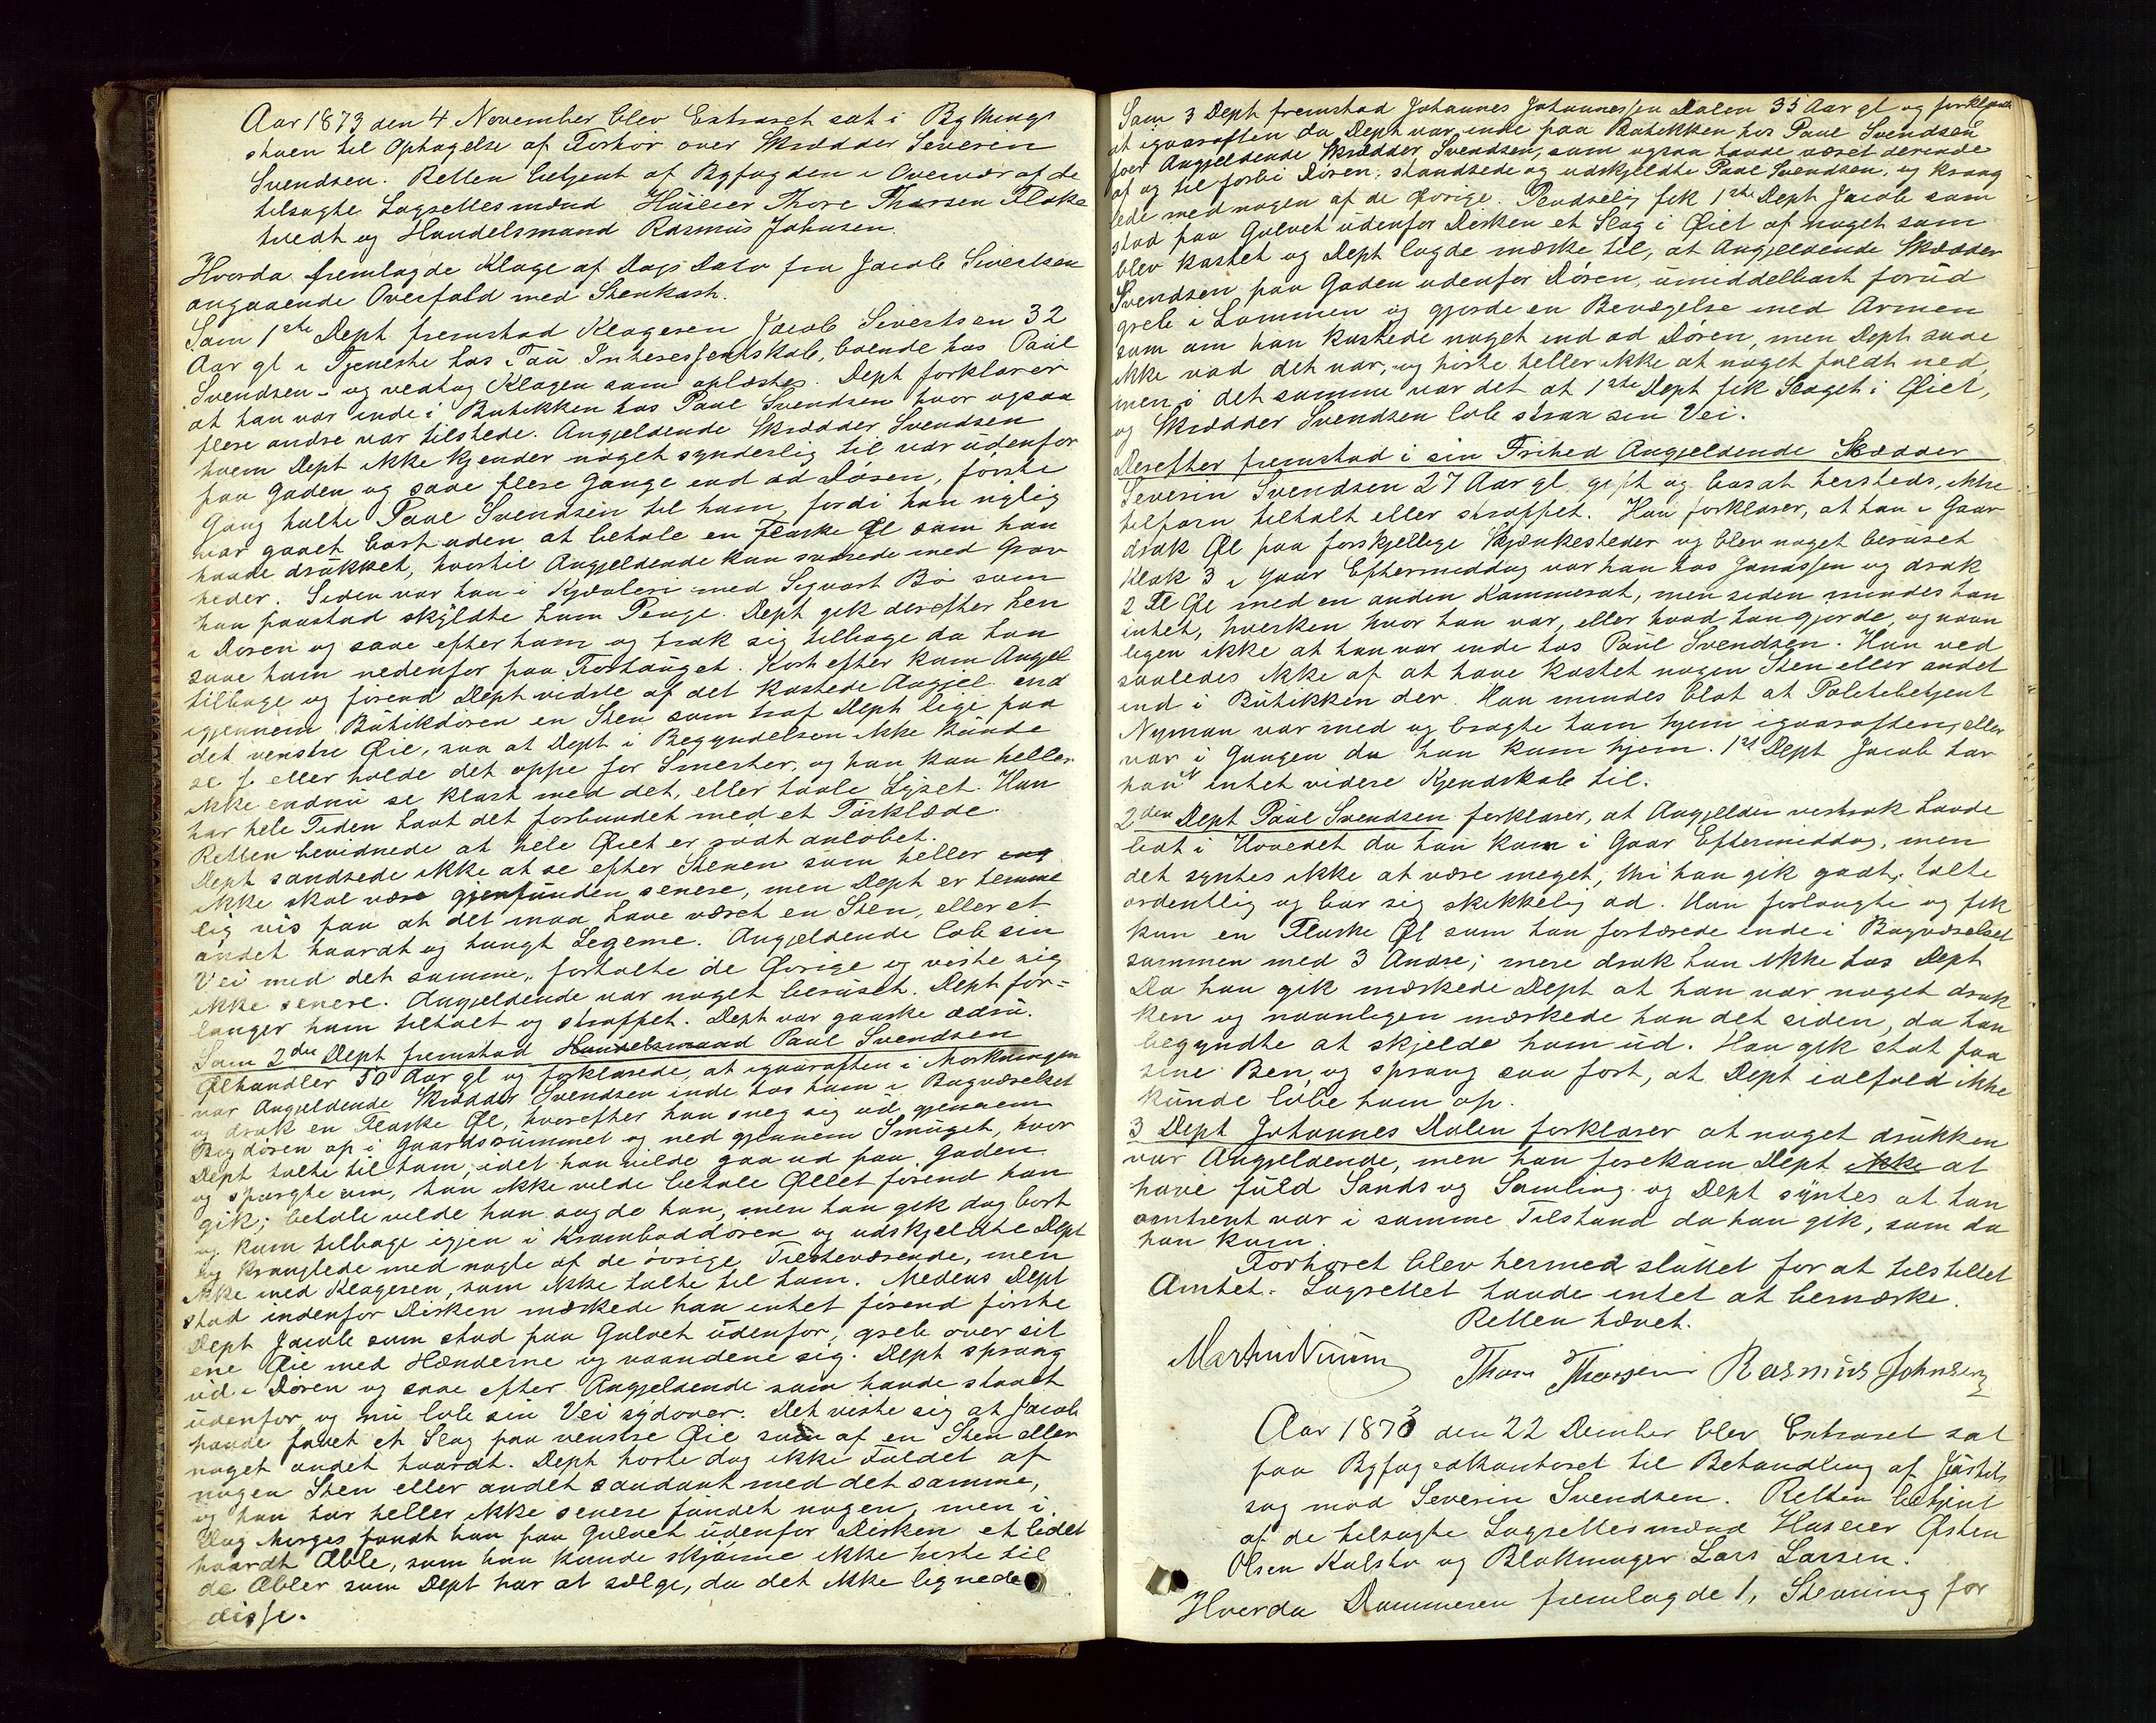 Aar 1873 den 4 November blev Extraret sat i Bythings
stuen til Optagelse af Forhör over Skrædder Severin
Svendsen. Retten betjent af Byfogden i Overvær af de
tilsagte Lagrettesmænd Huseier Thore Thorsen Fløke
tvedt og Handelsmand Rasmus Johnsen.
Hvorda fremlagde Klage af Dags Dato fra Jacob Sivertsen
angaaende Overfald med Stenkast.
Som 1ste Dept fremstod Klageren Jacob Sivertsen 32
Aar gl i Tjeneste hos Tau Interessentskab, boende hos Paul
Svendsen – og vedtog Klagen som oplæstes. Dept forklarer
at han var inde i Butikken hos Paul Svendsen hvor ogsaa
flere andre var tilstede. Angjeldende Skrædder Svendsen
hvem Dept ikke kjender noget synderlig til var udenfor
paa Gaden og saae flere Gange ind ad Døren, første
Gang talte Paul Svendsen til ham, fordi han nylig
var gaaet bort uden at betale en Flaske Øl som han
havde drukket, hvortil Angjeldende kun svarede med Grov
heder. Siden var han i Kjævleri med Sigvart Bø som
han paastod skyldte ham Penge. Dept gik derefter hen
i Døren og saae efter ham og trak sig tilbage da han
saae ham nedenfor paa Fortauget. Kort efter kom Angjel
tilbage og førend Dept vidste af det kastede Angjel. ind
igjennem Butikdøren en Sten som traf Dept lige paa
det venstre Øie, saa at Dept i Begyndelsen ikke kunde
se f. eller holde det oppe for Smerter, og han kan heller
ikke endnu se klart med det, eller taale Lyset. Han
har hele Tiden havt det forbundet med et Tørklæde.
Retten bevidnede at hele Øiet er rødt anløbet.
Dept sandsede ikke at se efter Stenen som heller
ikke skal være gjenfunden senere, men Dept er temme
lig vis paa at det maa have været en Sten, eller et
andet haardt og tungt Legeme. Angjeldende løb sin
Vei med det samme, fortalte de Øvrige og viste sig
ikke senere. Angjeldende var noget beruset. Dept for=
langer ham tiltalt og straffet. Dept var ganske ædru.
Som 2den Dept fremstod Handelsmand Paul Svendsen
Ølhandler 50 Aar gl og forklarede, at igaaraften i Mørkningen
var Angjeldende Skrædder Svendsen inde hos ham i Bagværelset
og drak en Flaske Øl, hvorefter han sneg sig ud gjennem
Bagdøren op i Gaardsrummet og ned gjennem Smuget, hvor
Dept talte til ham, idet han vilde gaa ud paa Gaden
og spurgte om, han ikke vilde betale Øllet førend han
gik; betale vilde han sagde han, men han gik dog bort
og kom tilbage igjen i Kramboddøren og udskjeldte Dept
og kranglede med nogle af de øvrige Tilsteværende, men
ikke med Klageren, som ikke talte til ham. Medens Dept
stod indenfor Disken mærkede han intet førend første
Dept Jacob som stod paa Gulvet udenfor, greb over sit
ene Øie med Hænderne og vaandede sig. Dept sprang
ud i Døren og saae efter Angjeldende som havde staaet
udenfor og nu løb sin Vei sydover. Det viste sig at Jacob
havde faaet et Slag paa venstre Øie som af en Sten eller
noget andet haardt. Dept hørte dog ikke Faldet af
nogen Sten eller andet saadant med det samme,
og han har heller ikke senere fundet nogen, men i
Dag Morges fandt han paa Gulvet udenfor Disken et lidet
haardt Æble, som han kunde skjønne ikke hørte til
de Æbler som Dept har at sælge, da det ikke lignede
disse.
Som 3 Dept fremstod Johannes Johannessen Dalen 35 Aar gl og forklarede
at igaaraften da Dept var inde paa Butikken hos Paul Svendsen
foer Angjeldende Skrædder Svendsen, som ogsaa havde været derinde
af og til forbi Døren, standsede og udskjeldte Paul Svendsen, og krang
lede med nogen af de Øvrige. Pludselig fik 1ste Dept Jacob som
stod paa Gulvet udenfor Disken et Slag i Øiet af noget som
blev kastet og Dept lagde mærke til, at Angjeldende Skrædder
Svendsen paa Gaden udenfor Døren, umiddelbart forud
greb i Lommen og gjorde en Bevægelse med Armen
som om han kastede noget ind ad Døren, men Dept saae
ikke vad det var, og hørte heller ikke at noget faldt ned,
men i det samme var det at 1ste Dept fik Slaget i Øiet,
og Skrædder Svendsen løb strax sin Vei.
Derefter fremstod i sin Frihed Angjeldende Skrædder
Severin Svendsen 27 Aar gl gift og bosat hersteds, ikke
tilforn tiltalt eller straffet. Han forklarer, at han i Gaar
drak Øl paa forskjellige Skjænkesteder og blev noget beruset
Klok 3 i Gaar Eftermiddag var han hos Jonassen og drak
2 Fl Øl med en anden Kammerat, men siden mindes han
intet, hverken hvor han var, eller hvad han gjorde, og navn
ligen ikke at han var inde hos Paul Svendsen. Han ved
saaledes ikke af at have kastet nogen Sten eller andet
ind i Butikken der. Han mindes blot at Politibetjent
Nyman var med og bragte ham hjem igaaraften, eller
var i Gangen da han kom hjem. 1st Dept Jacob har
han intet videre Kjendskab til.
2den Dept Paul Svendsen forklarer, at Angjelden vistnok havde
lidt i Hovedet da han kom i Gaar Eftermiddag, men
det syntes ikke at være meget, thi han gik godt, talte
ordentlig og bar sig skikkelig ad. Han forlangte og fik
kun en Flaske Øl som han fortærede inde i Bagværelset
sammen med 3 Andre; mere drak han ikke hos Dept
Da han gik mærkede Dept at han var noget druk
ken og navnligen mærkede han det siden, da han
begyndte at skjelde ham ud. Han gik støt paa
sine Ben, og sprang saa fort, at Dept ialfald ikke
kunde løbe ham op.
3 Dept Johannes Dalen forklarer at noget drukken
var Angjeldende, men han forekom Dept ikke at
have fuld Sands og Samling og Dept syntes at han
omtrent var i samme Tilstand da han gik, som da
han kom.
Forhøret blev hermed sluttet for at tilstillet
Amtet. Lagrettet havde intet at bemærke.
Retten hævet.
Thore Thorsen Rasmus Johnsen
Aar 1873 den 22 Dember blev Extraret sat
paa Byfogedkontoret til Behandling af Justits
sag mod Severin Svendsen. Retten betjent
af de tilsagte Lagrettesmænd Huseier Østen
Olsen Kalstø og Blokmager Lars Larsen.
Hvorda Dommeren fremlagde 1, Stevning for